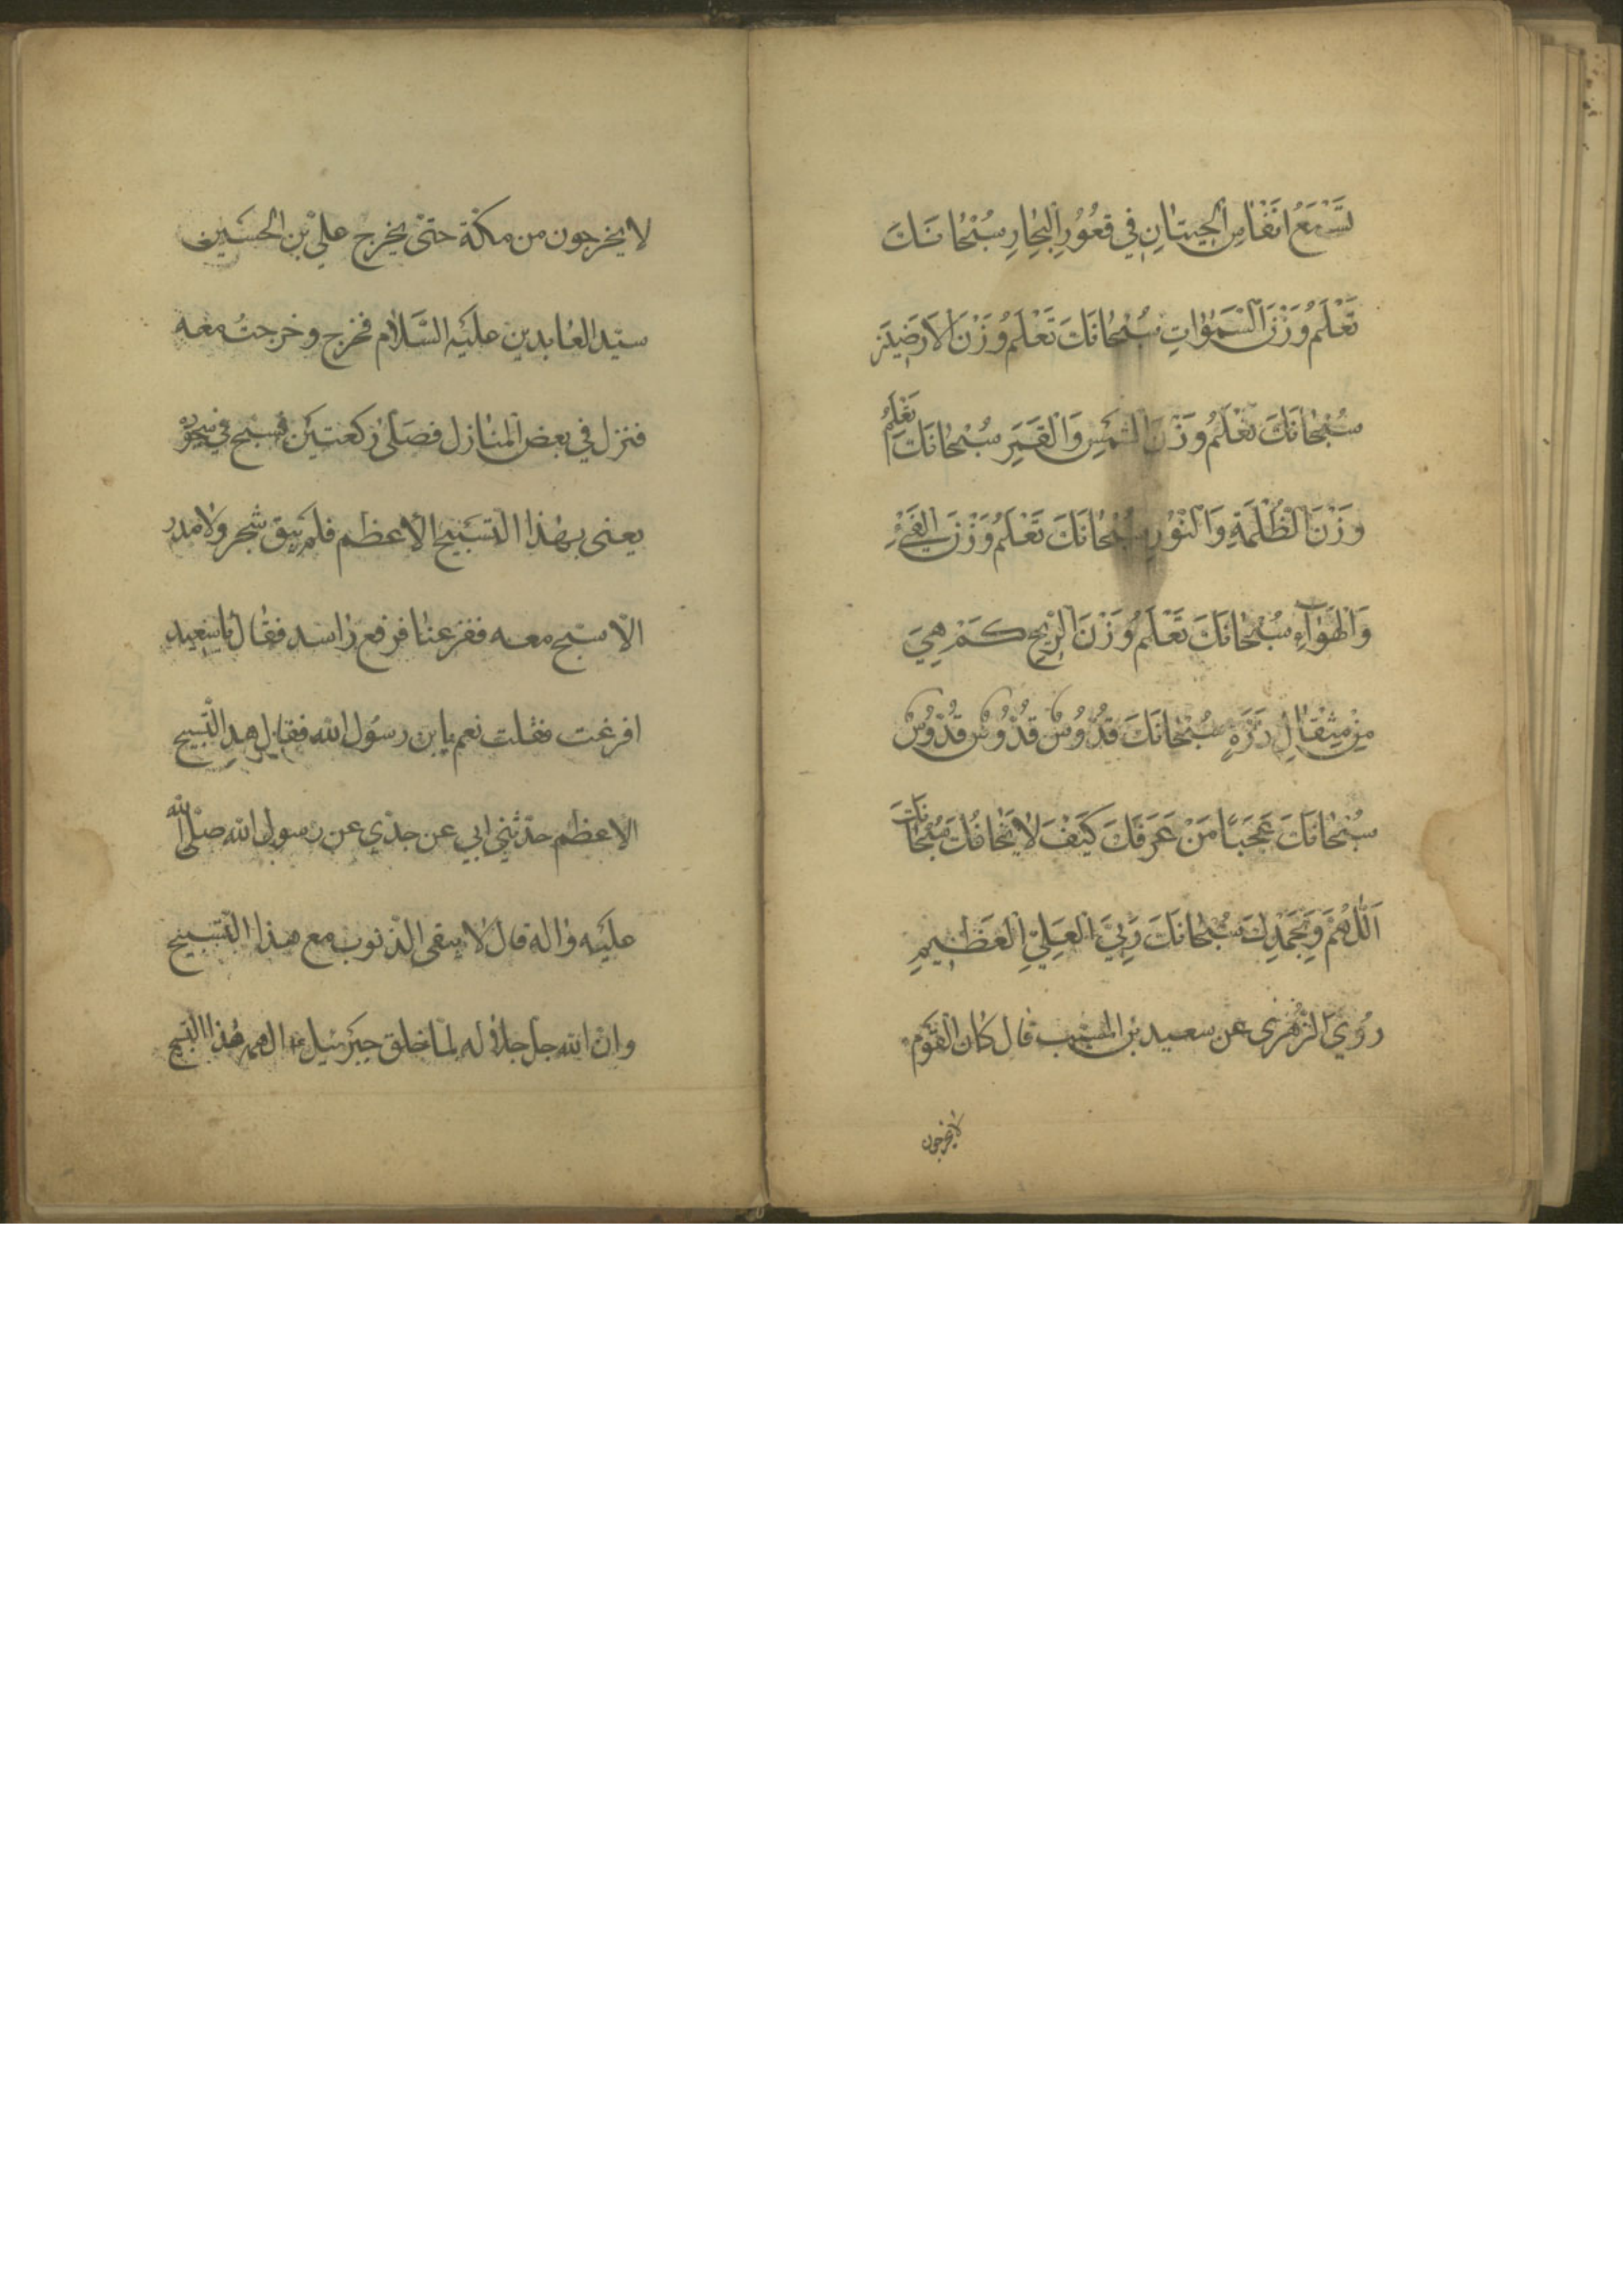 تَسْمَعُ اَنْفَاسَ الْحِيتَانِ فِي قُعُورِ الْبِحَارِ سُبْحَانَكَ
تَعْلَمُ وَزْنَ السَّمٰوَاتِ سُبْحَانَكَ تَعْلَمُ وَزْنَ الْاَرَضِينَ
سُبْحَانَكَ تَعْلَمُ وَزْنَ الشَّمْسِ وَالْقَمَرِ سُبْحَانَكَ تَعْلَمُ
وَزْنَ الظُّلْمَةِ وَالنُّوْرِ سُبْحَانَكَ تَعْلَمُ وَزْنَ الْفَيْءِ
وَالْهَوَاءِ سُبْحَانَكَ تَعْلَمُ وَزْنَ الرِّيْحِ كَمْ هِيَ
مِنْ مِثْقَالِ ذَرَّةٍ سُبْحَانَكَ قُدُّوسٌ قُدُّوسٌ قُدُّوسٌ
سُبْحَانَكَ عَجَبًا مَنْ عَرَفَكَ كَيْفَ لَا يَخَافُكَ سُبْحَانَكَ
اَللّٰهُمَّ وَبِحَمْدِكَ سُبْحَانَكَ رَبِّيَ الْعَلِيِّ الْعَظِيمِ
رُوِيَ الزُّهْرِي عن سعيد بن المسيب قال كان القَوم
لا يخرجون
لا يخرجون من مكّة حتىّ يخرج عليّ بن الحسَين
سيّد العابدين علَيْه السَّلَام فخرج وخرجتُ معه
فنزل في بعض المنازل فصَلّى ركعتَين فسبح في سجوده
يعنى بهذا التسَبيح الاعظم فلم يبق شجر ولا مدر
الّا سبّح معه ففزعنا فرفع راسه فقال يا سعيد
افزعت فقلت نعم يا بن رسُول الله فقال هذا التّسبيح
الاعظم حدّثني ابي عن جدّي عن رسول الله صلّى الله
عليَه واله قال لا يبقى الذّنوب مع هذا التّسبيح
وانّ الله جلّ جلاله لمّا خلق جبَرئيل الهمه هذا التسبيح